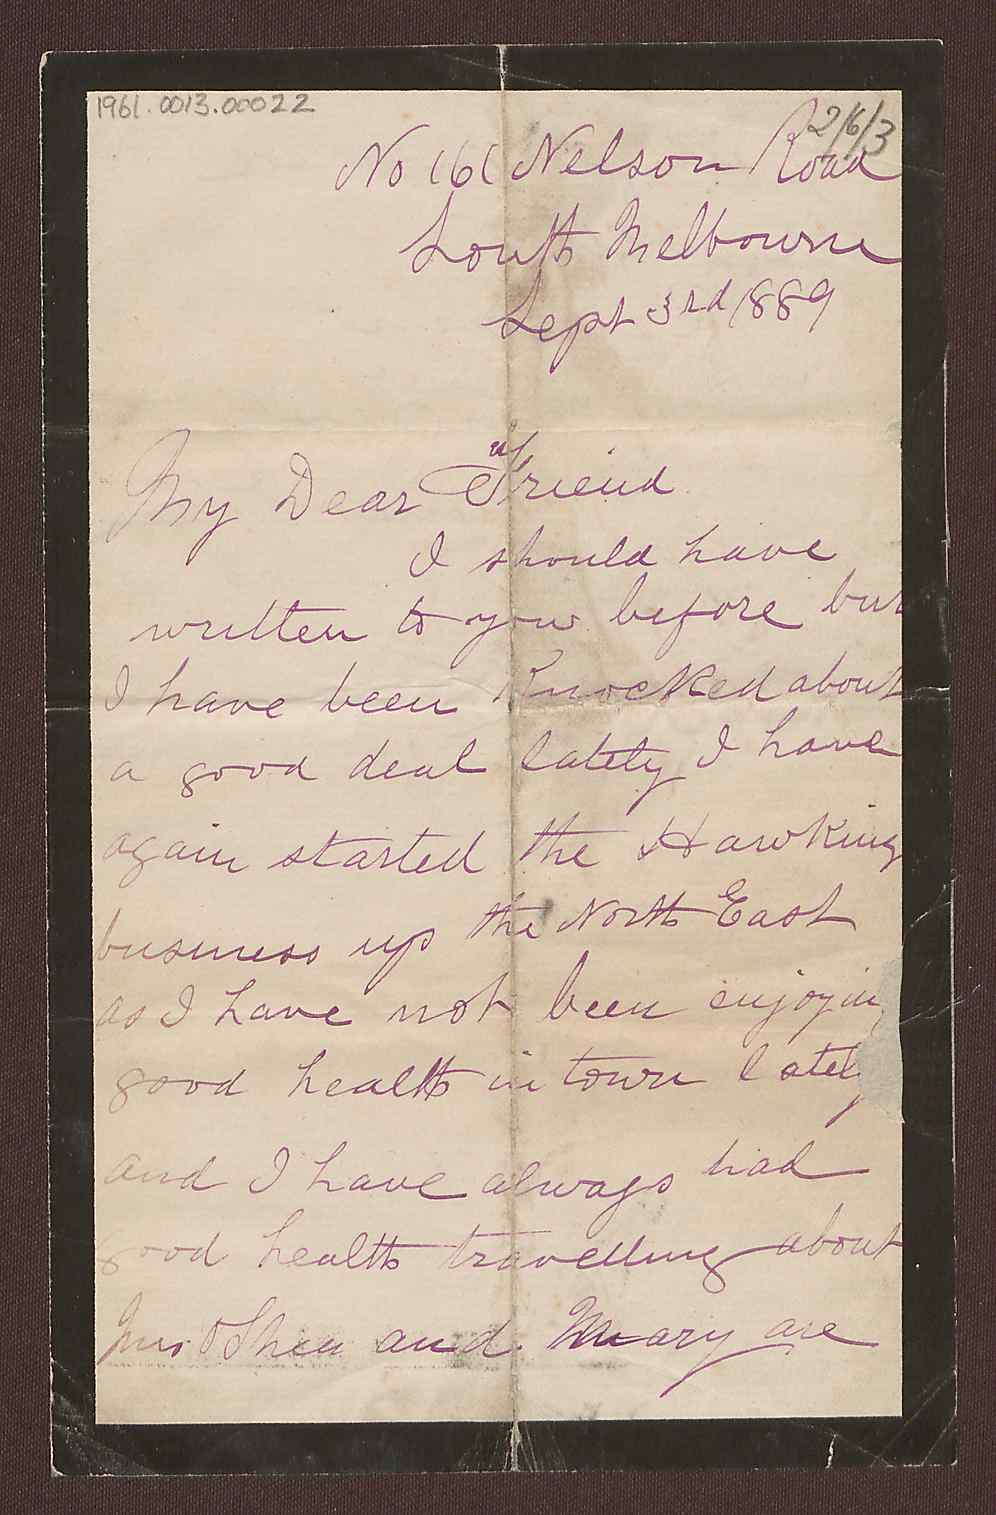 1961.0013.00022
2/6/3
No 161 Nelson Road
South Melbourne
Sept 3rd 1889
My Dear Friend
I should have
written to you before but
I have been Knocked about
a good deal lately I have
again started the Hawking
business up the North East
as I have not been enjoyin
good health in town lately
and I have always had
good health travelling about
Mrs OShea and Mary are